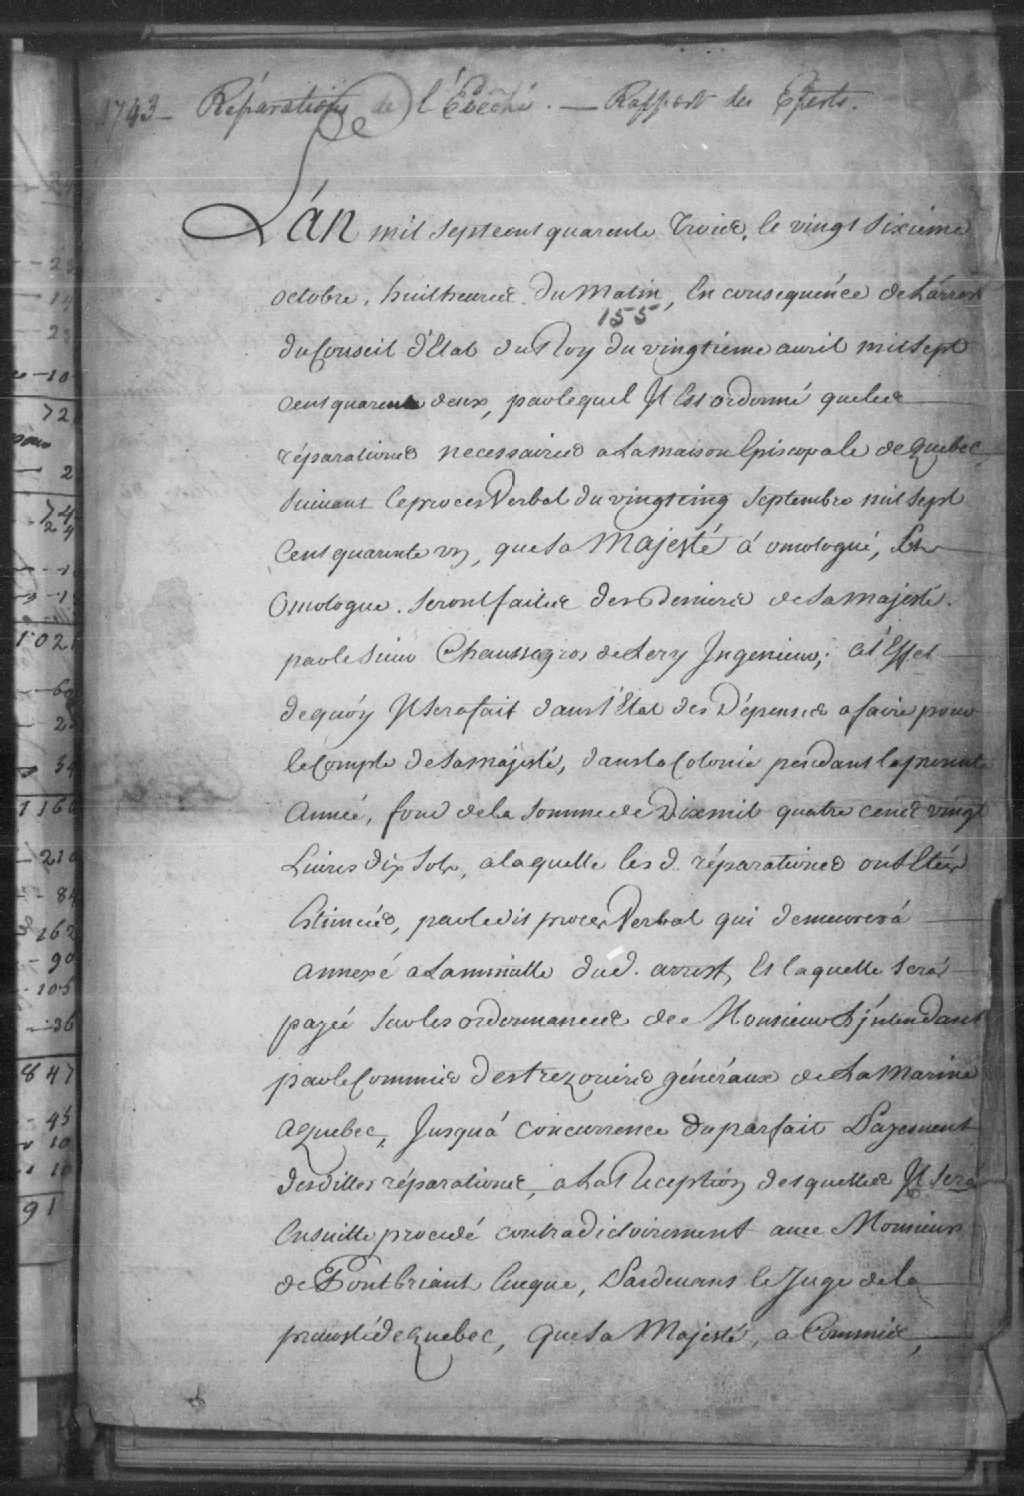 1743 - Réparations de l'Évêché. — Rapport des Experts.
L'án mil septcent quarente trois, le vingt sixieme
octobre, huit heures du Matin, En consequénce de L'arrest
155
du Conseil d'Etat du Roy du vingtieme avril mil sept
cent quarente deux, par lequel Il Est ordonné que les
réparations necessaires a La maison Episcopale de Quebec
suivant le procés Verbal du vingt cinq septembre mil sept
Cent quarente un, que Sa Majesté á omologué, Et
Omologue. seront faites des Deniers de Sa Majesté.
par le Sieur Chaussegros de Lery Ingenieur; a l'Effet
de quóy Il sera fait dans l'Etat des Dépenses a faire pour
le Compte de Sa Majesté, dans la Colonie pendant la presente
Année, fond de la Somme de Dix mil quatre cent vingt
Livres dix Sols, a laquelle les d. réparations ont Etés
Estimées, par le dit procés Verbal qui demeurerá
annexé a La minutte dud. arrest, Et laquelle será
payée sur les ordonnances de Monsieur L'jntendant
par le Commis des trezoriers généraux de La Marine
a Quebec, Jusqu'á Concurrence du parfait Payement
desdittes réparations, a La Reception desquelles Il será
Ensuitte procedé contradictoirement avec Monsieur
de Pontbriant Eveque, Pardevant le Juge de la
prevosté de Quebec, que Sa Majesté, a Commis,